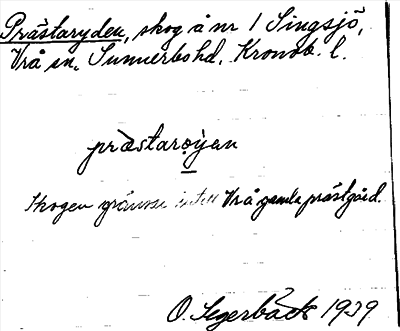 Prästaryden, skog å nr 1 Singsjö,
Vrå sn, Sunnerbo hd, Kronob. l.
Skogen gränsar intill Vrå gamla prästgård.
O. Segerbäck 1939